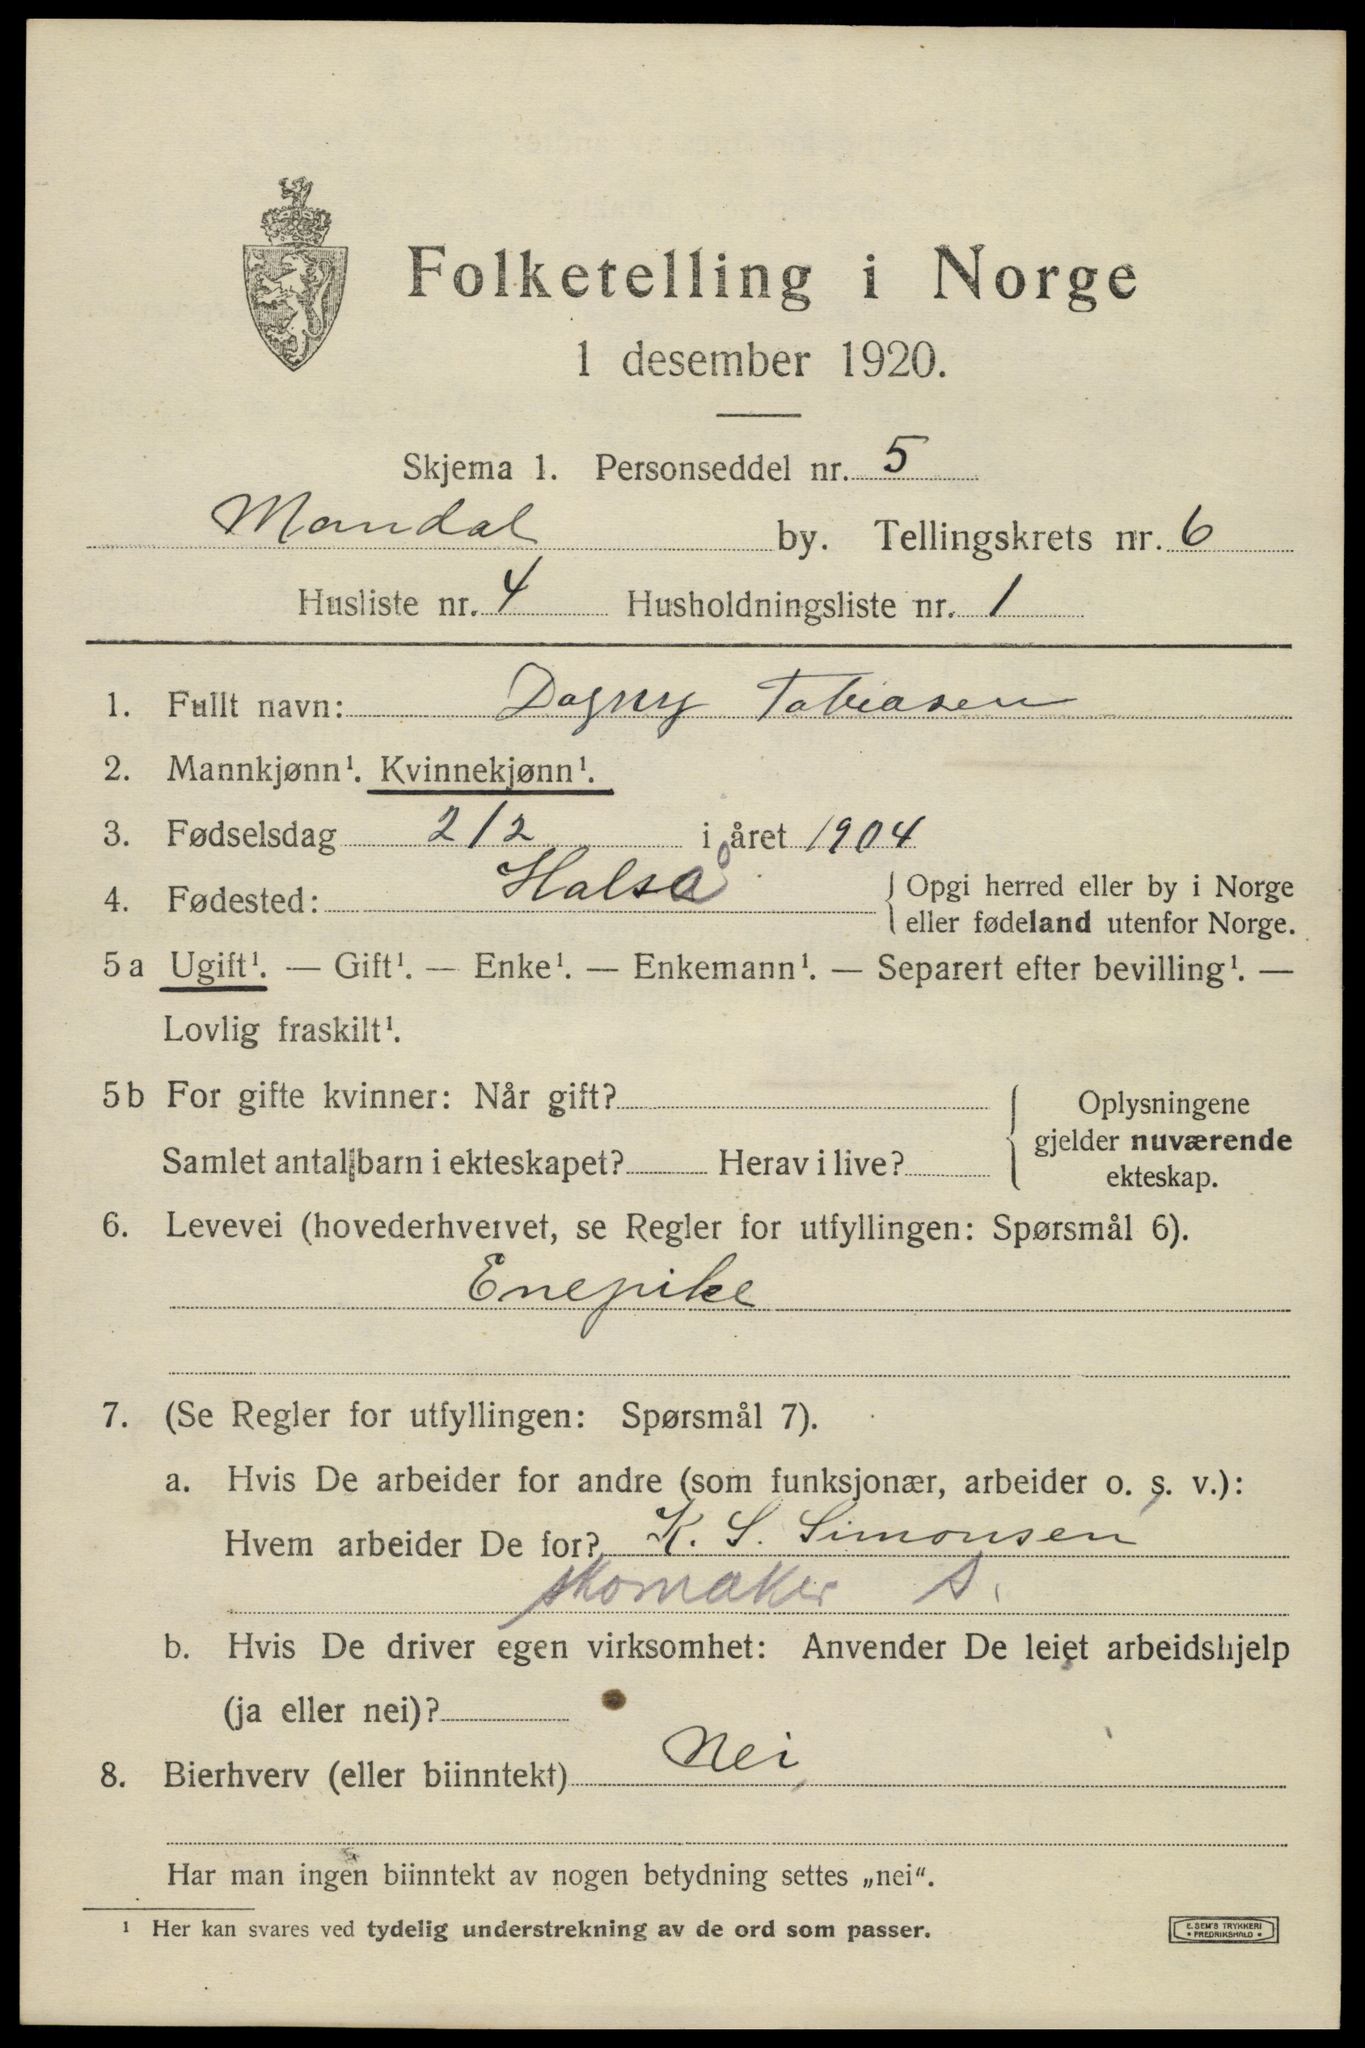 Folketelling i Norge
1 desember 1920.
Skjema 1. Personseddel nr. 5
Mandal by. Tellingskrets nr. 6
Husliste nr. 4 Husholdningsliste nr. 1
1. Fullt navn: Dagny Tobiasen
2. Mannkjønn¹. Kvinnekjønn¹.
3. Fødselsdag 2/2 i året 1904
4. Fødested: Halså { Opgi herred eller by i Norge
eller fødeland utenfor Norge.
5a Ugift¹. — Gift¹. — Enke¹. — Enkemann¹. — Separert efter bevilling¹. —
Lovlig fraskilt¹.
5b For gifte kvinner: Når gift? { Oplysningene
gjelder nuværende
Samlet antal barn i ekteskapet? Herav i live? ekteskap.
6. Levevei (hovederhvervet, se Regler for utfyllingen: Spørsmål 6).
Enepike
7. (Se Regler for utfyllingen: Spørsmål 7).
a. Hvis De arbeider for andre (som funksjonær, arbeider o. s. v.):
Hvem arbeider De for? K. S. Simonsen
skomaker A.
b. Hvis De driver egen virksomhet: Anvender De leiet arbeidshjelp
(ja eller nei)?
8. Bierhverv (eller biinntekt) Nei
Har man ingen biinntekt av nogen betydning settes „nei“.
¹ Her kan svares ved tydelig understrekning av de ord som passer.
E. SEM'S TRYKKERI
* FREDRIKSHALD *